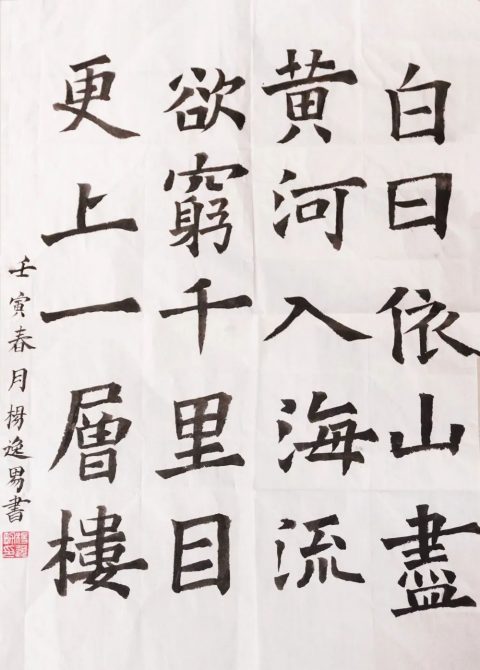 白日依山盡
黃河入海流
欲窮千里目
更上一層樓
壬寅春月楊逸男書